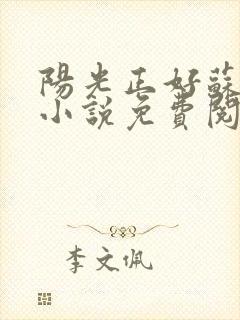 陽光正好蘇
小說免費閱
李文佩